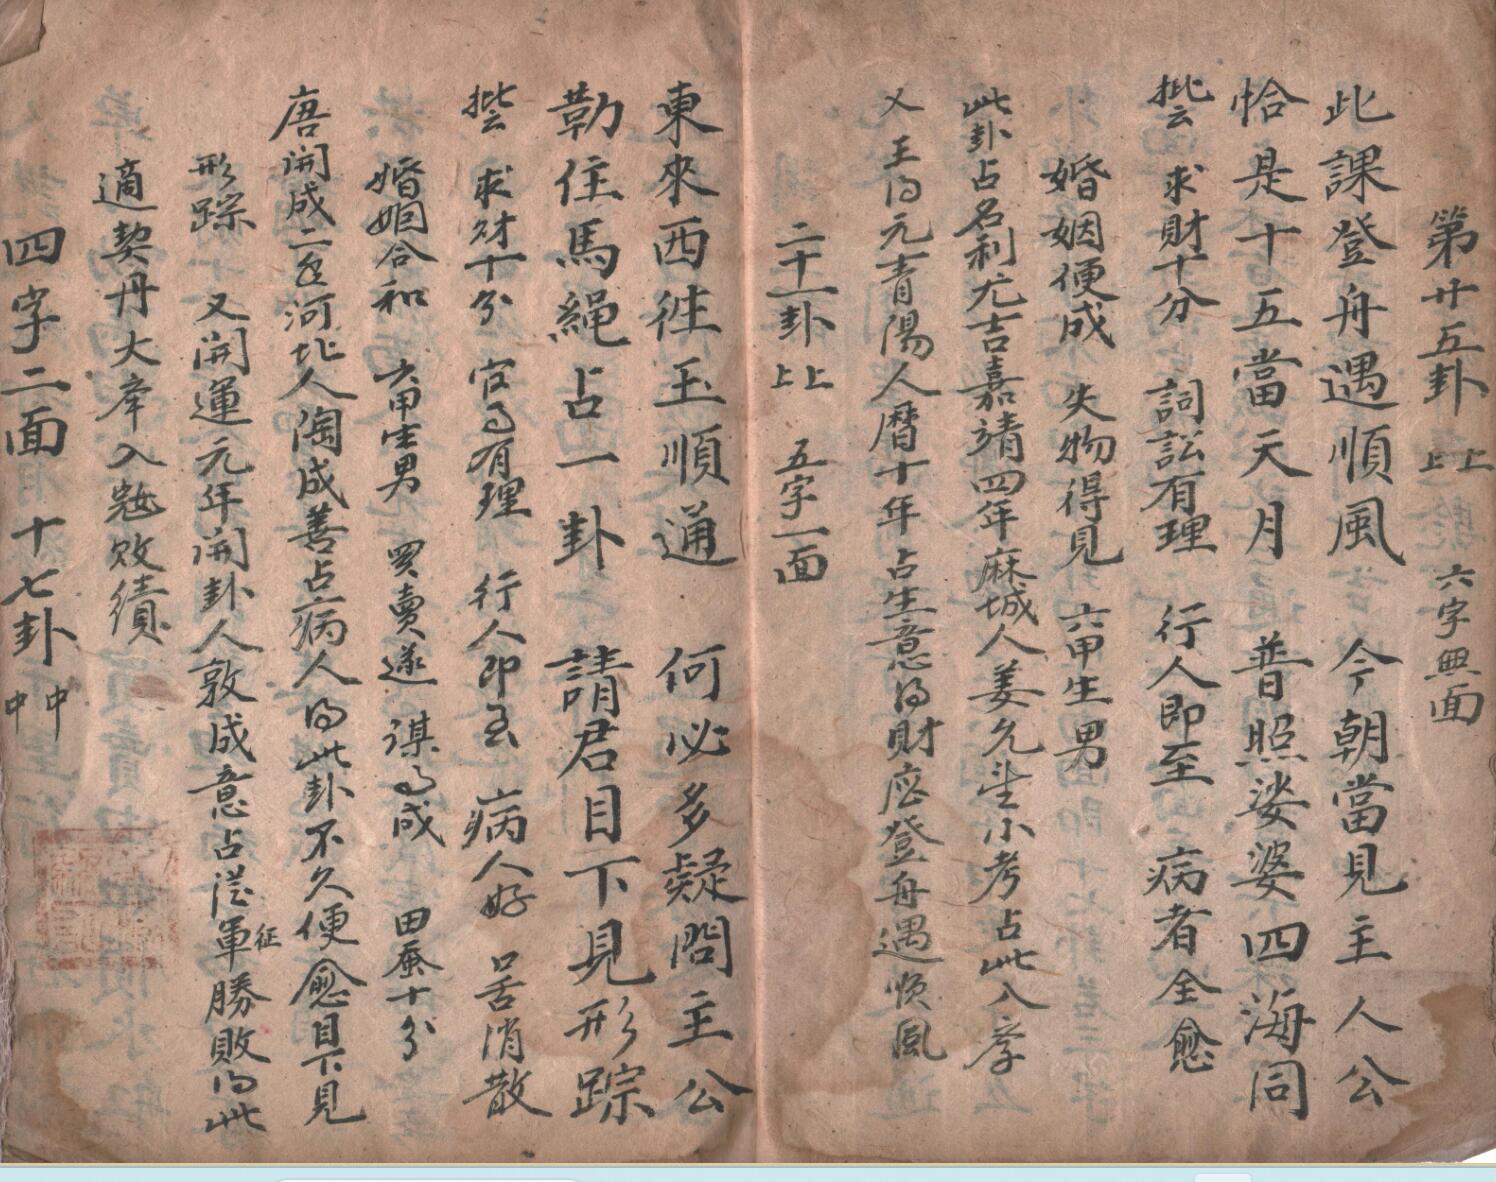 第廿五卦 上上 六字無面
此課登舟遇順風 今朝當見主人公
恰是十五當天月 普照娑婆四海同
批云 求財十分 詞訟有理 行人即至 病者全愈
婚姻便成 失物得見 六甲生男
此卦占名利尤吉嘉靖四年麻城人姜允生小考占此入庠
又 王 元青陽人曆十年占生意 財應登舟遇順風
二十一卦 上上 五字一面
東來西往玉順通 何必多疑問主公
勒住馬繩占一卦 請君目下見形踪
批云 求財十分 官 有理 行人即至 病人好 口舌消散
婚姻合和 六甲生男 買賣遂 謀 成 田蚕十分
唐開成二年河北人陶成善占病人 此卦不久便愈目下見
形踪 又開運元年開卦人敦成意占從軍征勝敗 此
適契丹大 入 敗績
四字二面 十七卦 中中